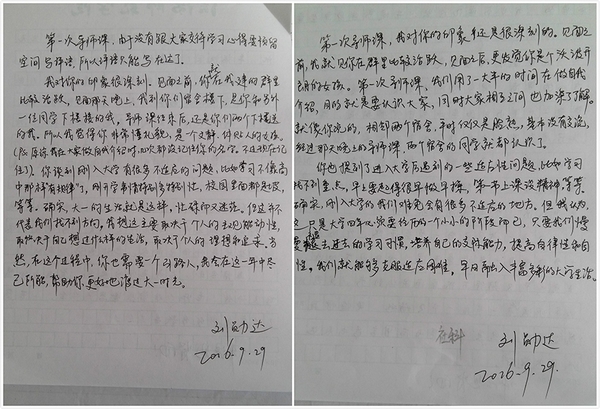 第一次导师课，由于没有跟大家交待学习心得要预留
空间写评语，所以评语只能写在这了。
我对你的印象很深刻。见面之前，你在我建的群里就
比较活跃，见面那天晚上，我到你们宿舍楼下，是你和另外
一位同学下楼接我的。导师课结束后，还是你们两个下楼送
我的。所以我觉得你非常懂礼貌，是个文静、讨人喜欢的女孩。
记住）。你谈到刚入大学有很多不适应的问题，比如学习不像高
中那样有规律了，刚开学事情特别多特别忙，校园里面都是
等等。确实，大一的生活就是这样，忙碌而又迷茫。但这并不
代表我们找不到方向，我想这主要取决于个人的主观能动性，
取决于自己想过什么样的生活，取决于个人的理想和追求。当
然，在这个过程中，你也需要一个引路人，我会在这一年中尽
己所能，帮助你更好地渡过大一时光。
刘勋达
2016.9.29
第一次导师课，我对你的印象还是很深刻的。见面之
前，我就见你在群里比较活跃，见面之后，更加觉得你是个活泼开
朗的女孩。第一次导师课，我们用了一大半的时间在做自我
介绍，目的就是要认识大家，同时大家相互之间也加深了了解。
就像你说的，相邻两个宿舍，平时仅仅是脸熟，基本没有交流，
经过那天晚上的导师课，两个宿舍的同学就都认识了。
你也提到了进入大学后遇到的一些适应性问题，比如学习
找不到重点，早上要起得很早做早操，第一节上课没精神，等等。
确实，刚入大学的我们对难免会有很多不适应的地方。但我认为，
这只是大学四年必须要经历的一个小小的阶段而已，只要我们慢
过去的学习习惯，培养自己的各种能力，提高自律性和自
性，我们就能够克服适应困难，早日融入丰富多彩的大学生活。
社科
刘勋达
2016.9.29.